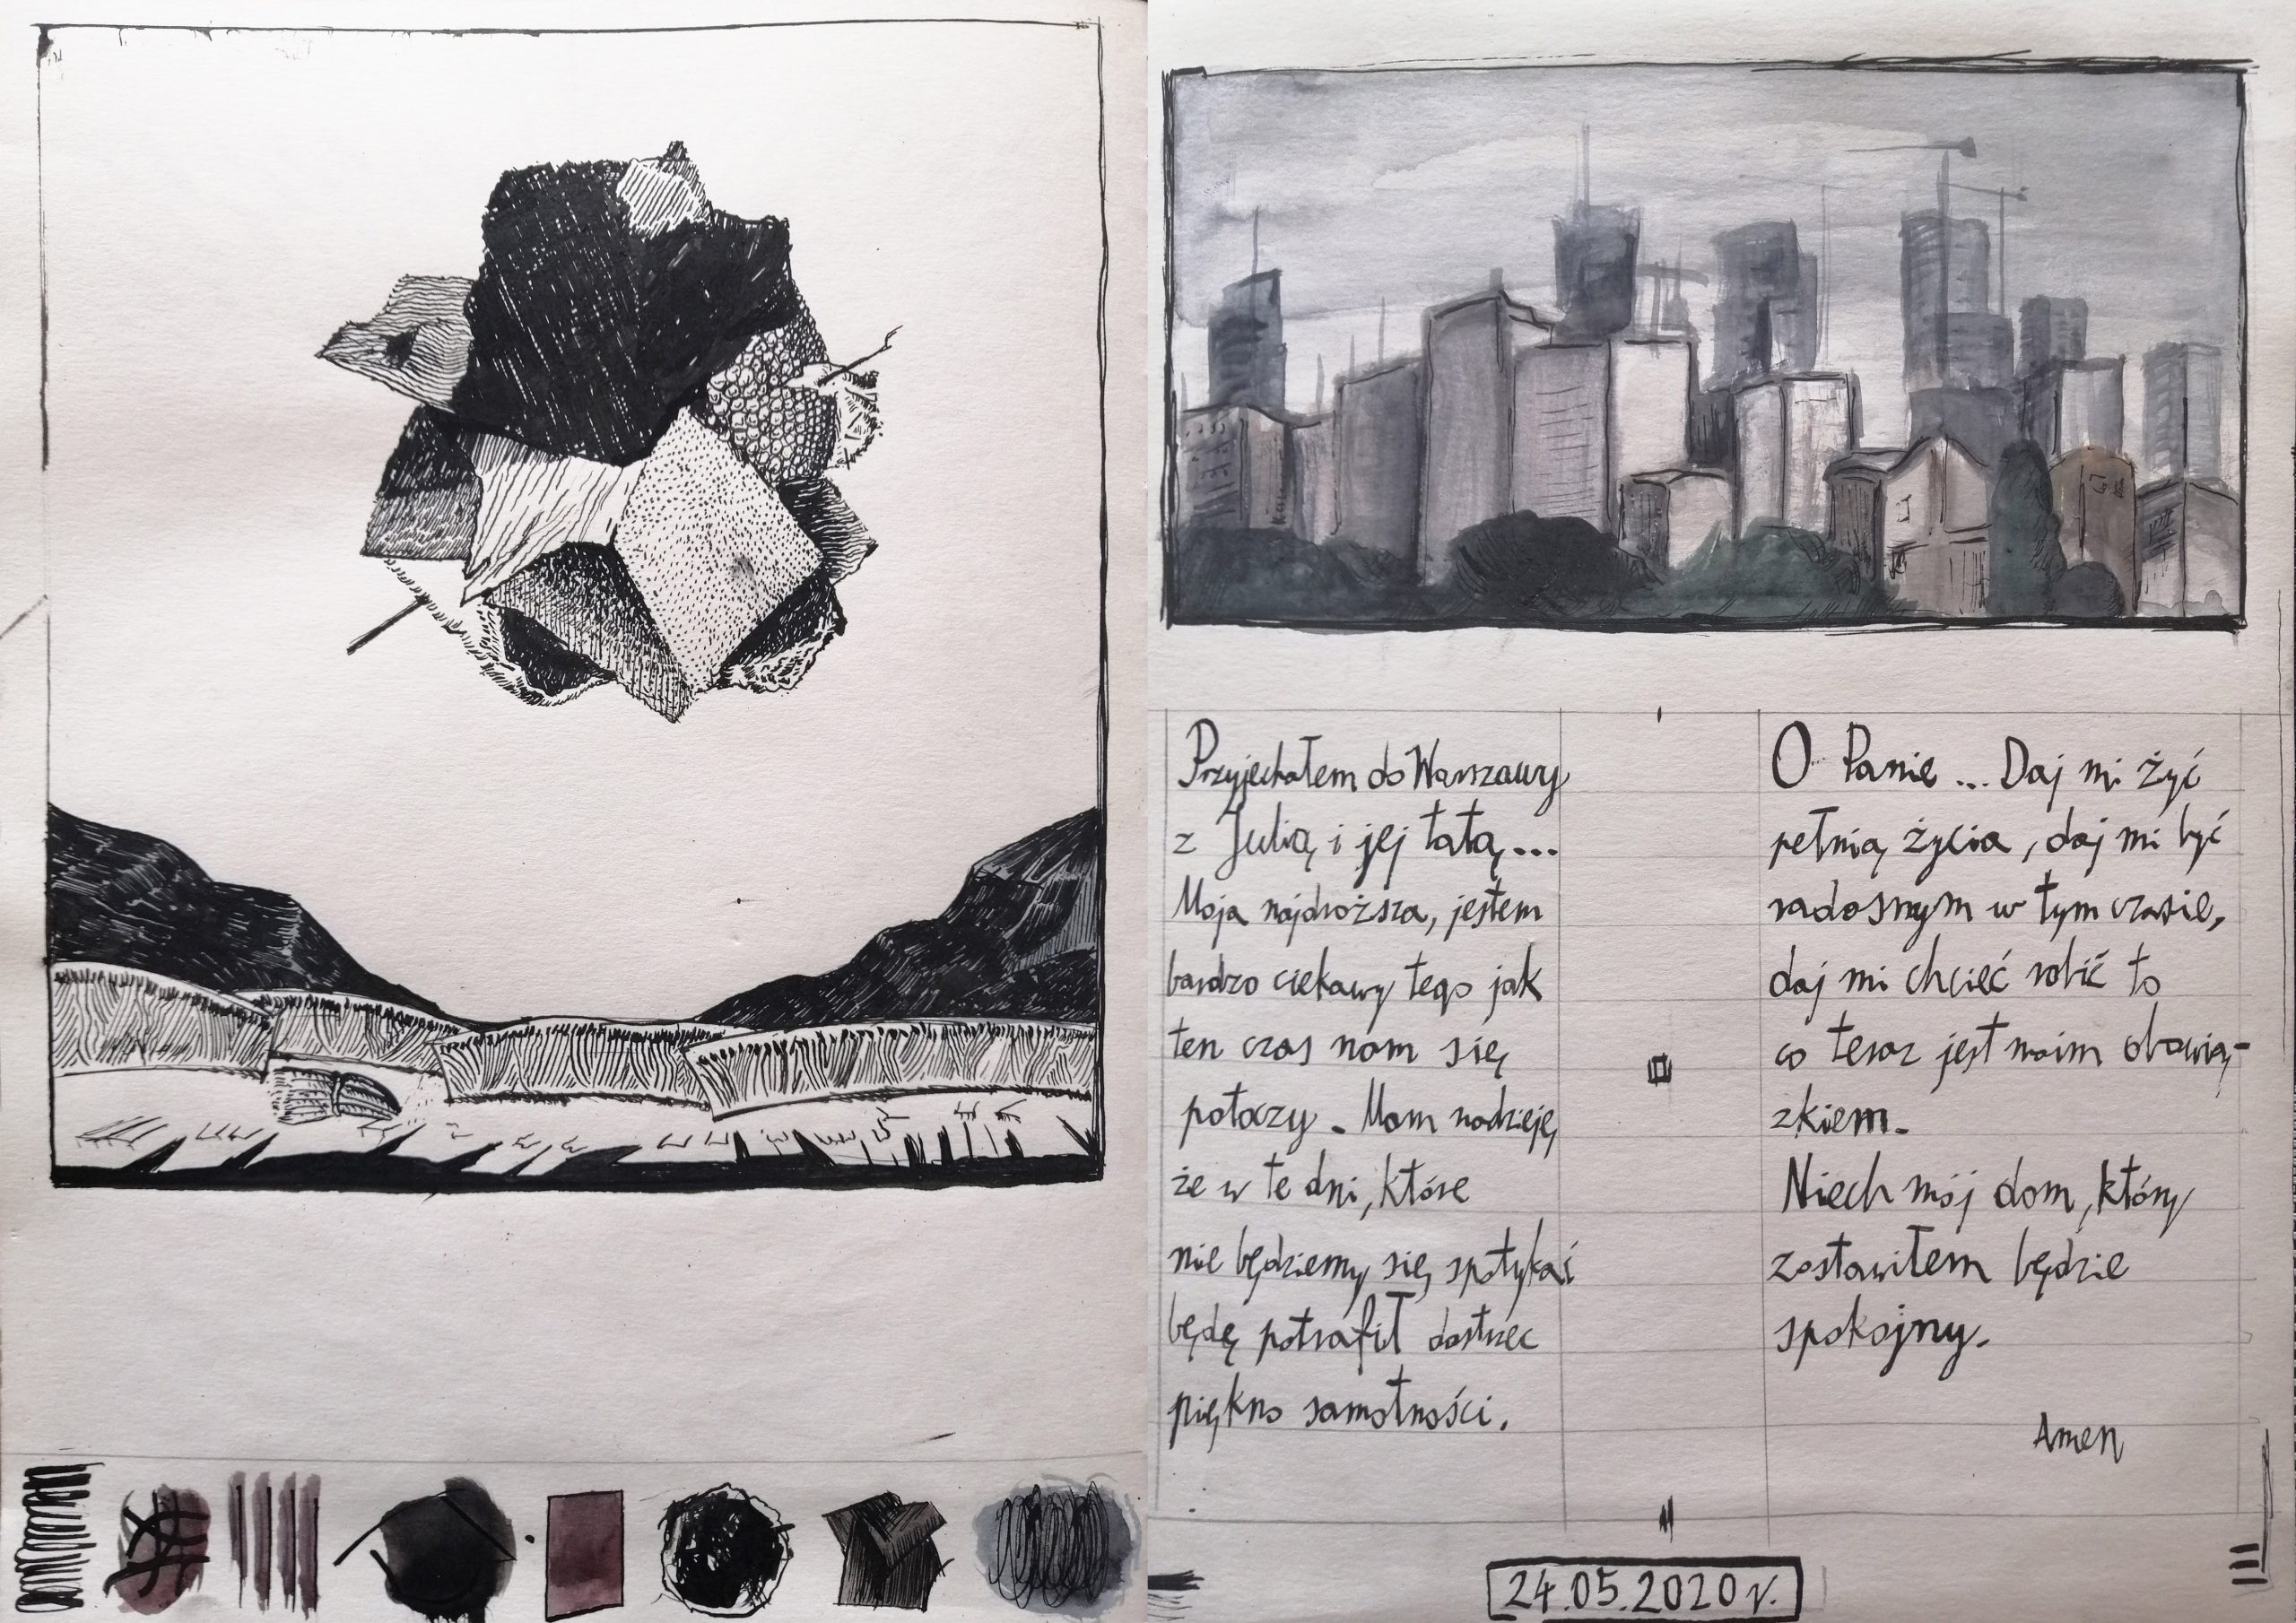 Przyjechałem do Warszawy
z Julią i jej tatą...
Moja najdroższa, jestem
bardzo ciekawy tego jak
ten czas nam się
potoczy. Mam nadzieję,
że w te dni, które
nie będziemy się spotykać
będę potrafił dostrzec
piękno samotności.
O Panie... Daj mi żyć
pełnią życia, daj mi być
radosnym w tym czasie,
daj mi chcieć robić to
co teraz jest moim obowią-
zkiem.
Niech mój dom, który
zostawiłem będzie
spokojny.
Amen
24.05.2020 r.